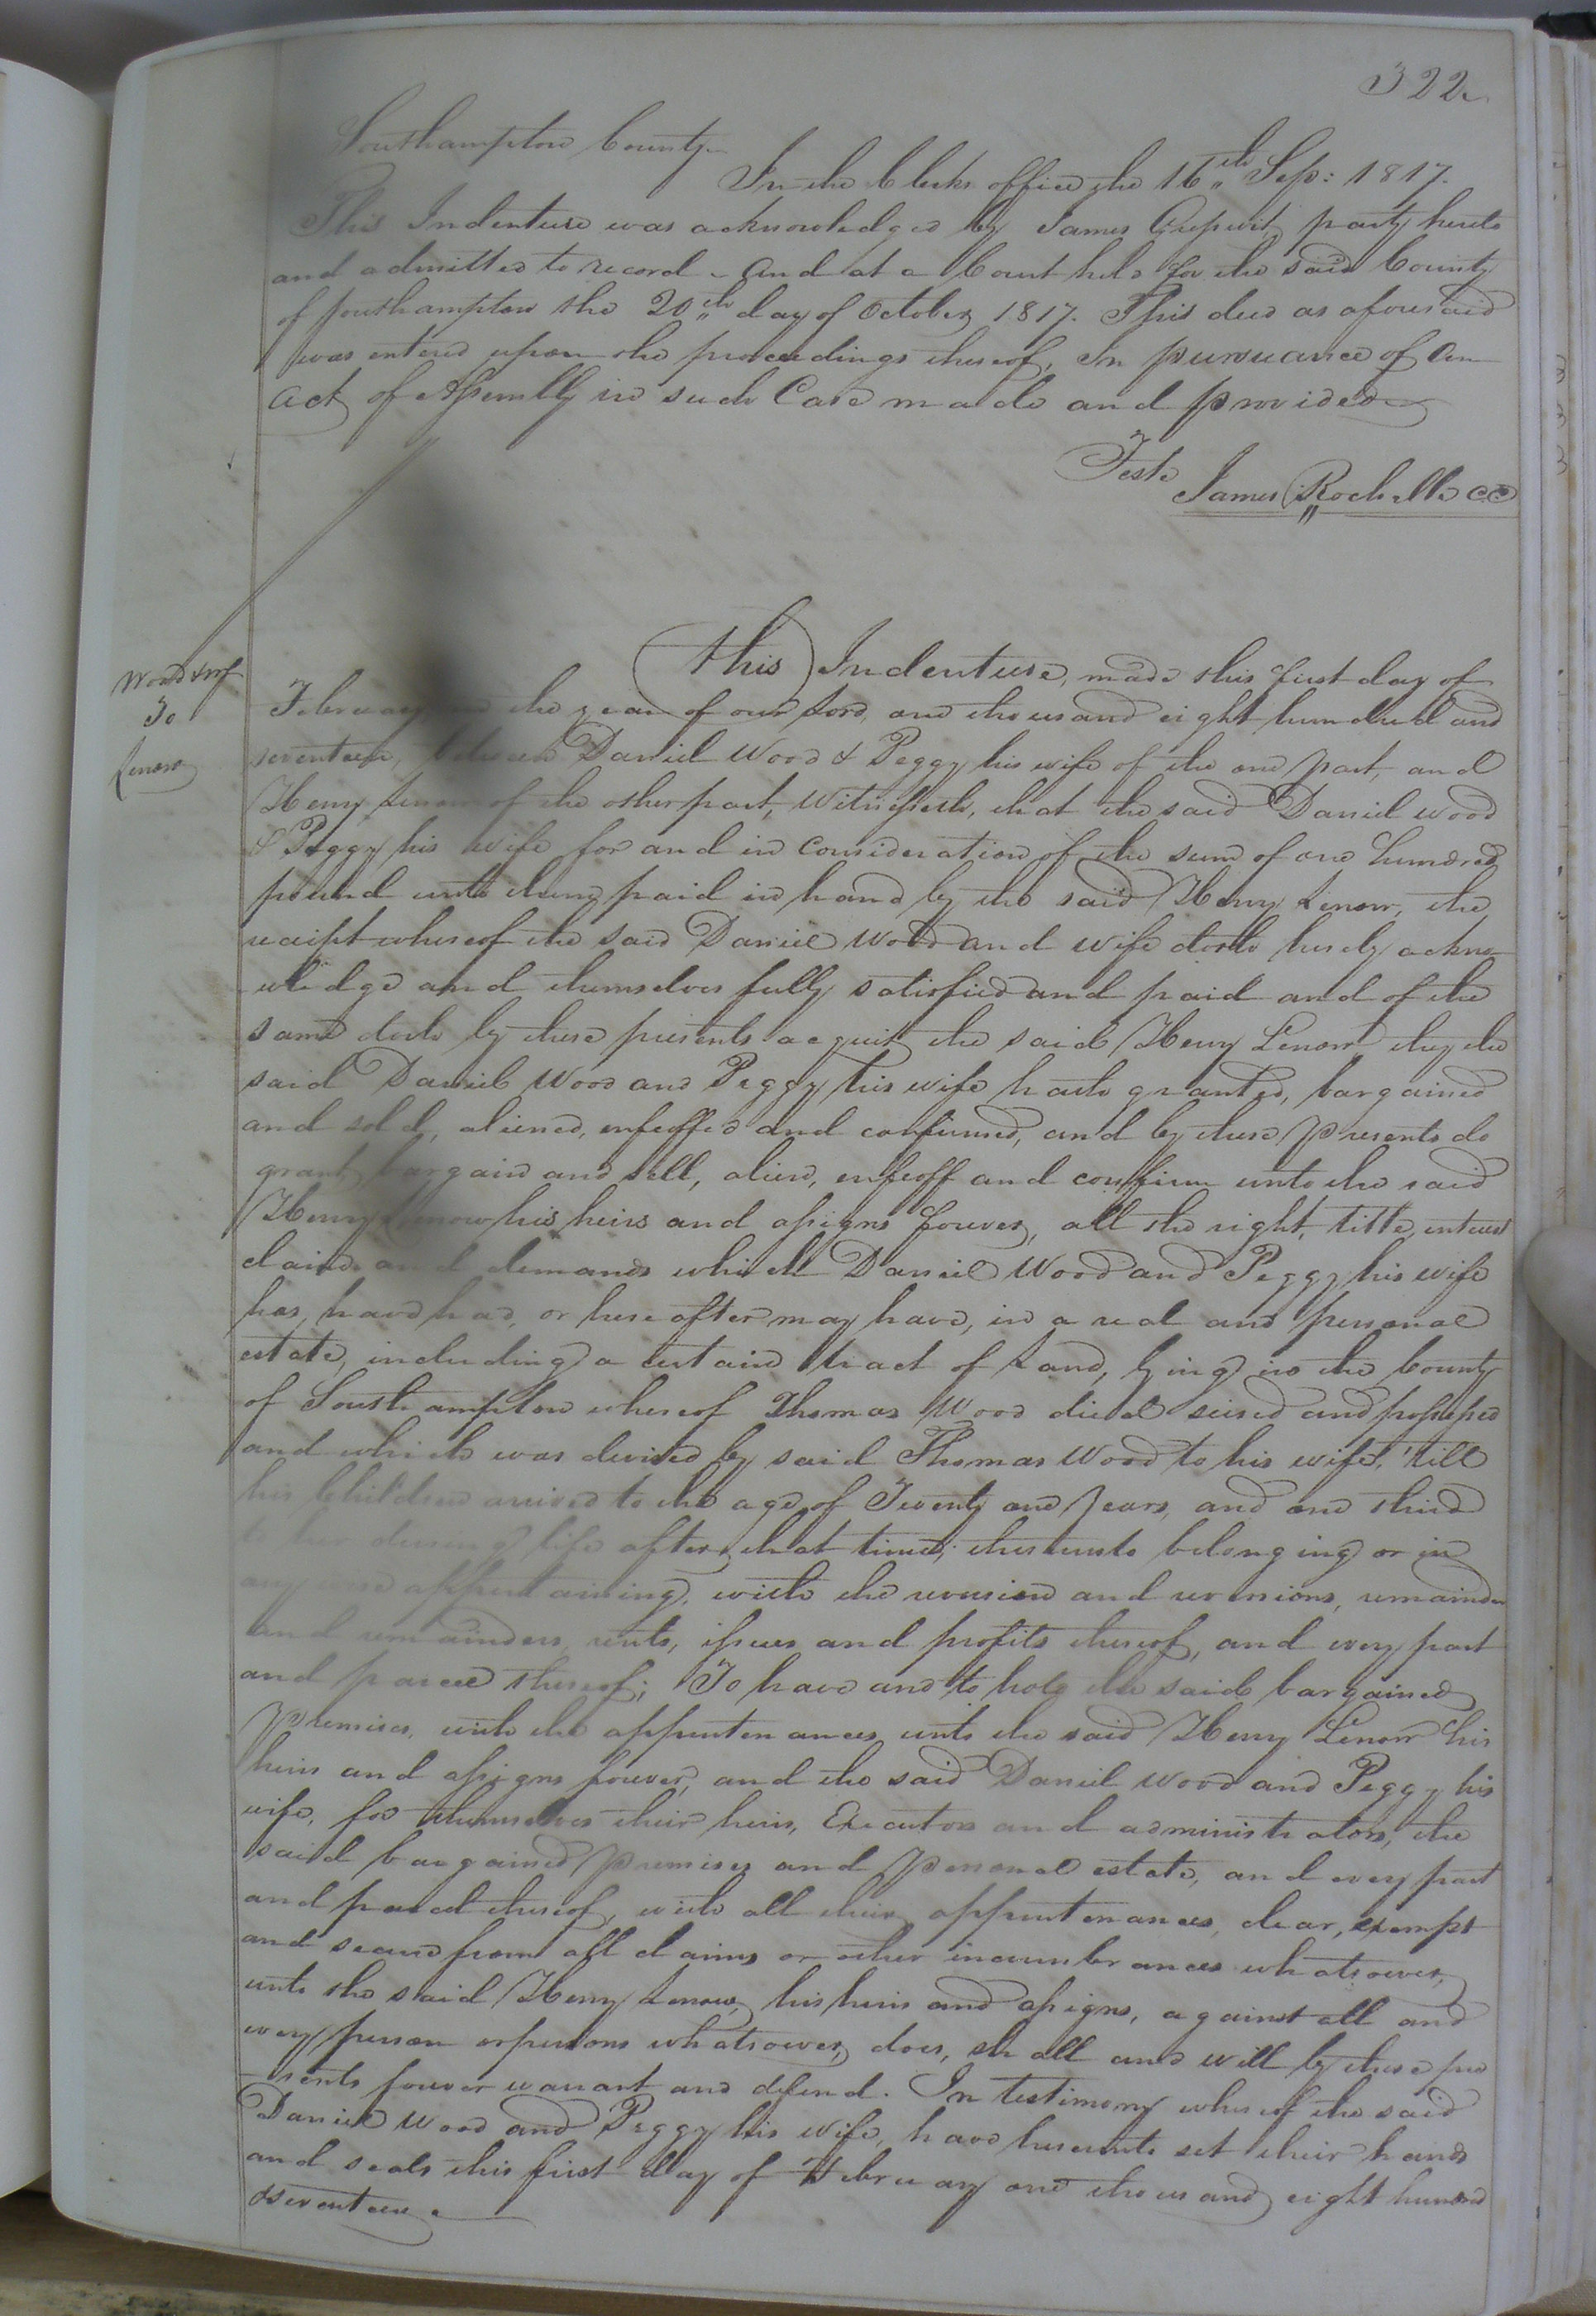 322
Southampton County
In the Clerks office the 16th Sep: 1817.
This Indenture was acknowledged by James party hereto
and admitted to record - and at a Court held for the said County
of Southampton the 20th day of October 1817. This deed as aforesaid
was entered upon the proceedings thereof, In pursuance of an
act of Assembly in such Case made and provided
Teste
James Rochelle CC
Wood & wf
To
Lenow
This Indenture, made this first day of
February in the year of our Lord, one thousand eight hundred and
seventeen, between Daniel Wood & Peggy his wife of the one part, and
Henry Lenow of the other part, Witnesseth, that the said Daniel Wood
& Peggy his wife for and in Consideration of the sum of one hundred
pound unto them paid in hand by the said Henry Lenow, the
receipt whereof the said Daniel Wood and wife doth hereby ackno-
wledge and themselves fully satisfied and paid and of the
same doth by these presents acquit the said Henry Lenow they the
said Daniel Wood and Peggy his wife hath granted, bargained
and sold, aliened, enfeoffed and confirmed, and by these presents do
grant, bargain and sell, alien, enfeoff and confirm unto the said
Henry Lenow his heirs and assigns forever, all the right, title, interest
claim and demands which Daniel Wood and Peggy his wife
has, have had, or hereafter may have, in a real and personal
estate, including a certain tract of Land, lying in the County
of Southampton whereof Thomas Wood died seised and possessed
and which was devised by said Thomas Wood to his wife, 'till
his Children arrived to the age of Twenty one years, and one third
her during life after that time; thereunto belonging or in
any wise appertaining, with the reversion and reversions, remainder
and remainders, rents, issues and profits thereof, and every part
and parcel thereof; To have and to hold the said bargained
premises, with the appurtenances unto the said Henry Lenow his
heirs and assigns forever, and the said Daniel Wood and Peggy his
wife, for themselves their heirs, Executors and administrators, the
said bargained premises and personal estate, and every part
and parcel thereof, with all their appurtenances, clear, exempt
and secure from all claims or other incumbrances whatsoever,
unto the said Henry Lenow, his heirs and assigns, against all and
every person or persons whatsoever, does, shall and will by these pre
-sents forever warrant and defend. In testimony whereof the said
Daniel Wood and Peggy his wife, have hereunto set their hands
and seals this first day of February one thousand eight hundred
& seventeen.